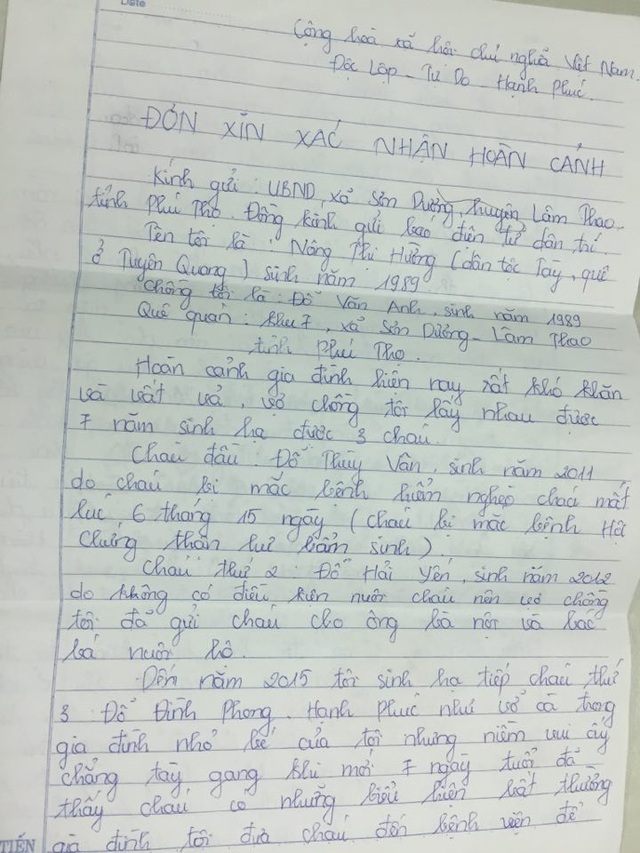 Date
Cộng hoà xã hội chủ nghĩa Việt Nam.
Độc Lập - Tự Do - Hạnh Phúc.
ĐƠN XIN XÁC NHẬN HOÀN CẢNH
Kính gửi : UBND, xã Sơn Dương, huyện Lâm Thao,
tỉnh Phú Thọ. Đồng kính gửi báo điện tử dân trí.
Tên tôi là : Nông Thị Hường (dân tộc Tày, quê
ở Tuyên Quang) sinh năm 1989
Chồng tôi là : Đỗ Văn Anh, sinh năm 1989
Quê quán : khu 7, xã Sơn Dương - Lâm Thao
tỉnh Phú Thọ.
Hoàn cảnh gia đình hiện nay rất khó khăn
và vất vả, vợ chồng tôi lấy nhau được
7 năm sinh hạ được 3 cháu.
Cháu đầu : Đỗ Thùy Vân, sinh năm 2011
do cháu bị mắc bệnh hiểm nghèo cháu mất
lúc 6 tháng 15 ngày (cháu bị mắc bệnh Hội
Chứng thận hư bẩm sinh).
Cháu thứ 2 : Đỗ Hải Yến, sinh năm 2012
do không có điều kiện nuôi cháu nên vợ chồng
tôi đã gửi cháu cho ông bà nội và bác
bá nuôi hộ.
Đến năm 2015 tôi sinh hạ tiếp cháu thứ
3 Đỗ Đình Phong. Hạnh Phúc như vỡ oà trong
gia đình nhỏ bé của tôi nhưng niềm vui ấy
chẳng tày gang khi mới 7 ngày tuổi đã
thấy cháu có những biểu hiện bất thường
gia đình tôi đưa cháu đến bệnh viện để
TIẾN